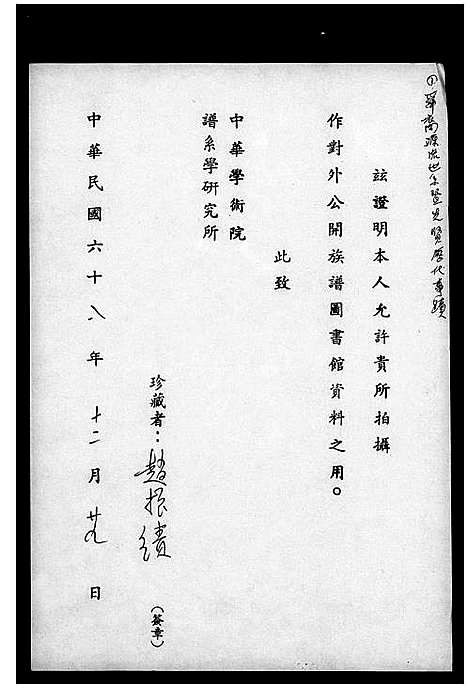 茲證明本人允許貴所拍攝
作對外公開族譜圖書館資料之用。
此致
中華學術院
譜系學研究所
珍藏者：趙振績
(簽章)
中華民國六十八年十二月廿九日